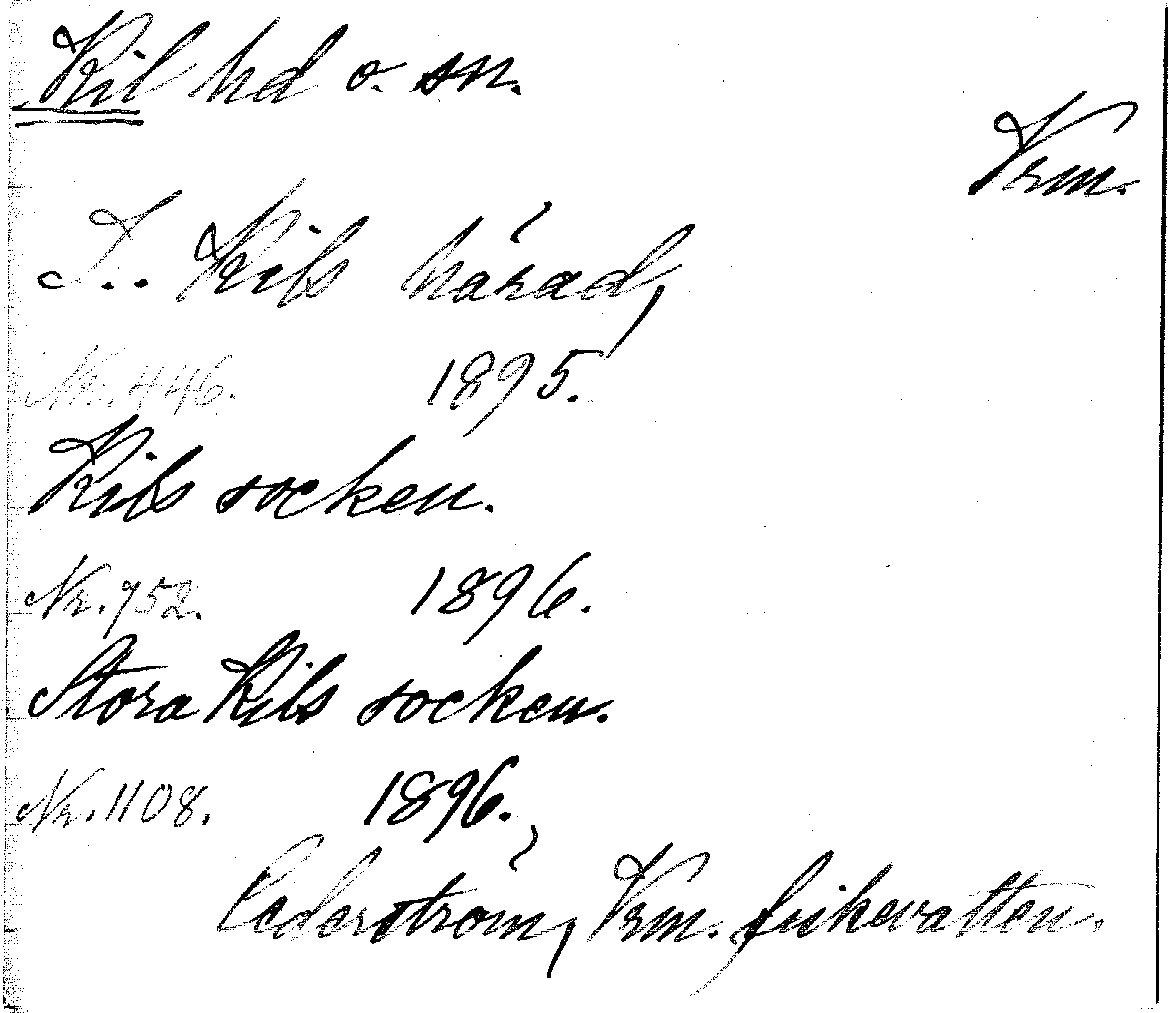 Kil hd o. sn.
Vrm.
I.. Kils härad,
Nr. 446. 1895.
Kils socken.
Nr. 752. 1896.
Stora Kils socken.
Nr. 1108. 1896.
Cederström, Vrm. fiskevatten.